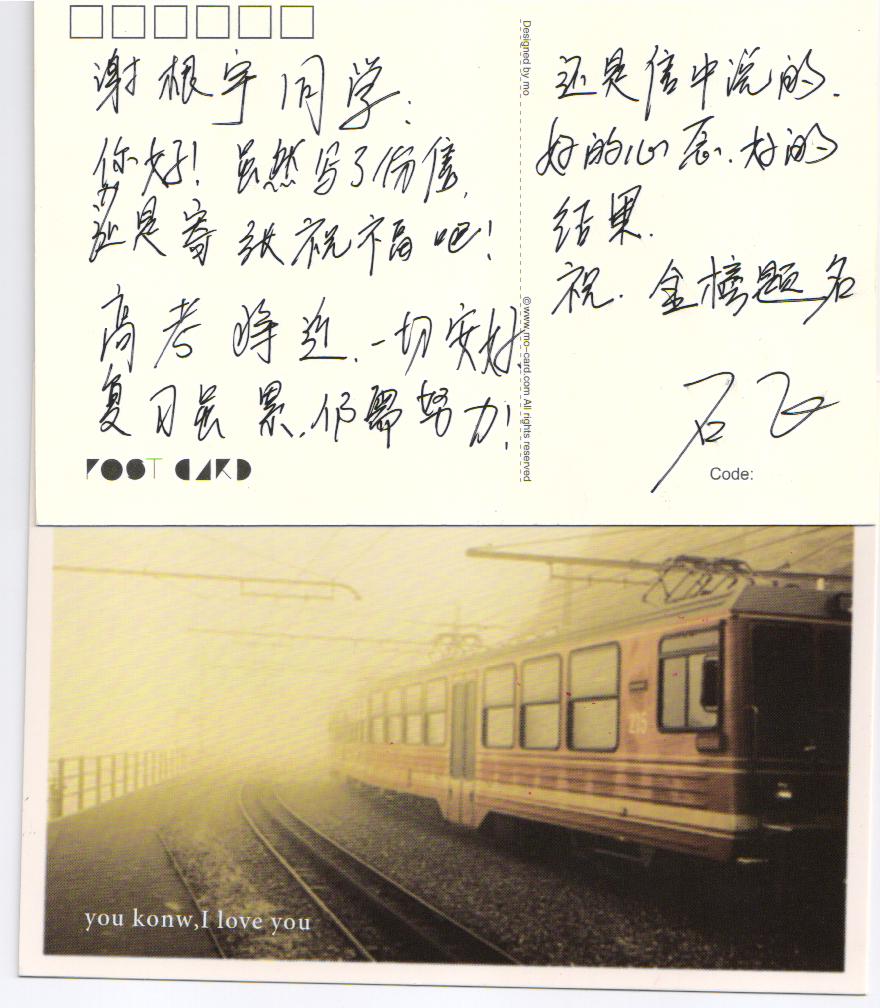 谢根宇同学:
你好!虽然写了份信,
还是寄张祝福吧!
高考将近,一切安好,
复习虽累,仍需努力!
POST CARD
Designed by mo
©www.mo-card.com All rights reserved
还是信中说的.
好的心态.好的
结果.
祝.金榜题名
石飞
Code:
215
you konw,I love you